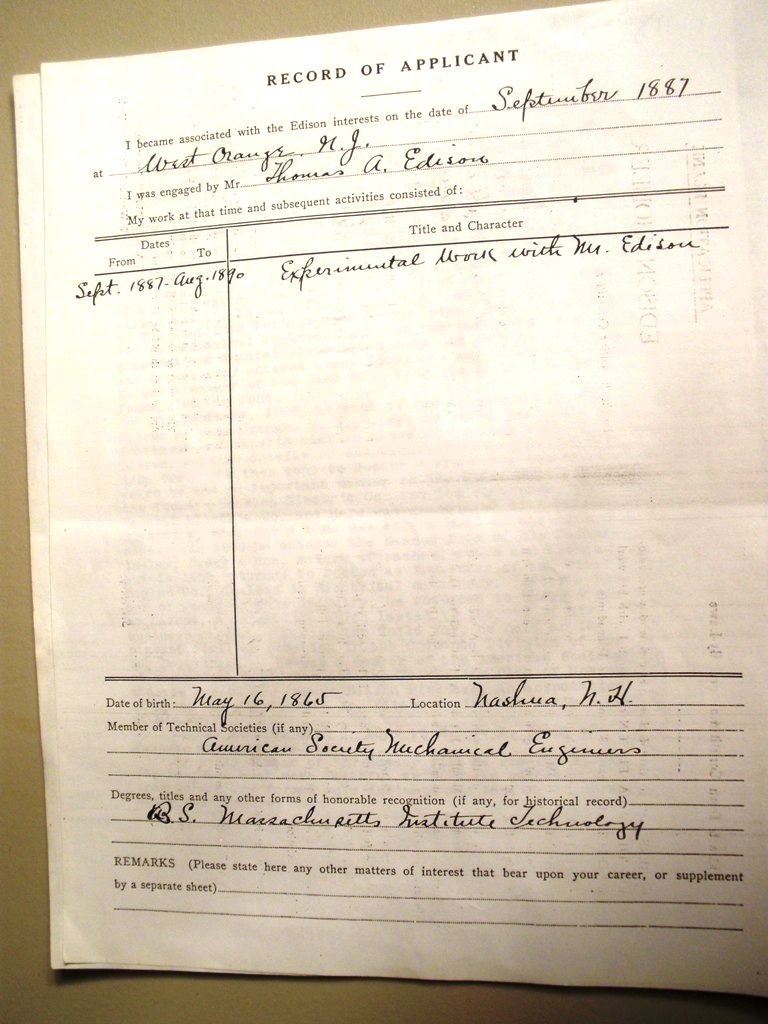 RECORD OF APPLICANT
I became associated with the Edison interests on the date of September 1887
at West Orange. N.J.
I was engaged by Mr. Thomas A. Edison
My work at that time and subsequent activities consisted of:
Dates
From To
Title and Character
Sept. 1887 - Aug. 1890 Experimental Work with Mr. Edison
Date of birth: May 16, 1865 Location Nashua, N.H.
Member of Technical Societies (if any)
American Society Mechanical Engineers
Degrees, titles and any other forms of honorable recognition (if any, for historical record)
B.S. Massachusetts Institute Technology
REMARKS (Please state here any other matters of interest that bear upon your career, or supplement
by a separate sheet)